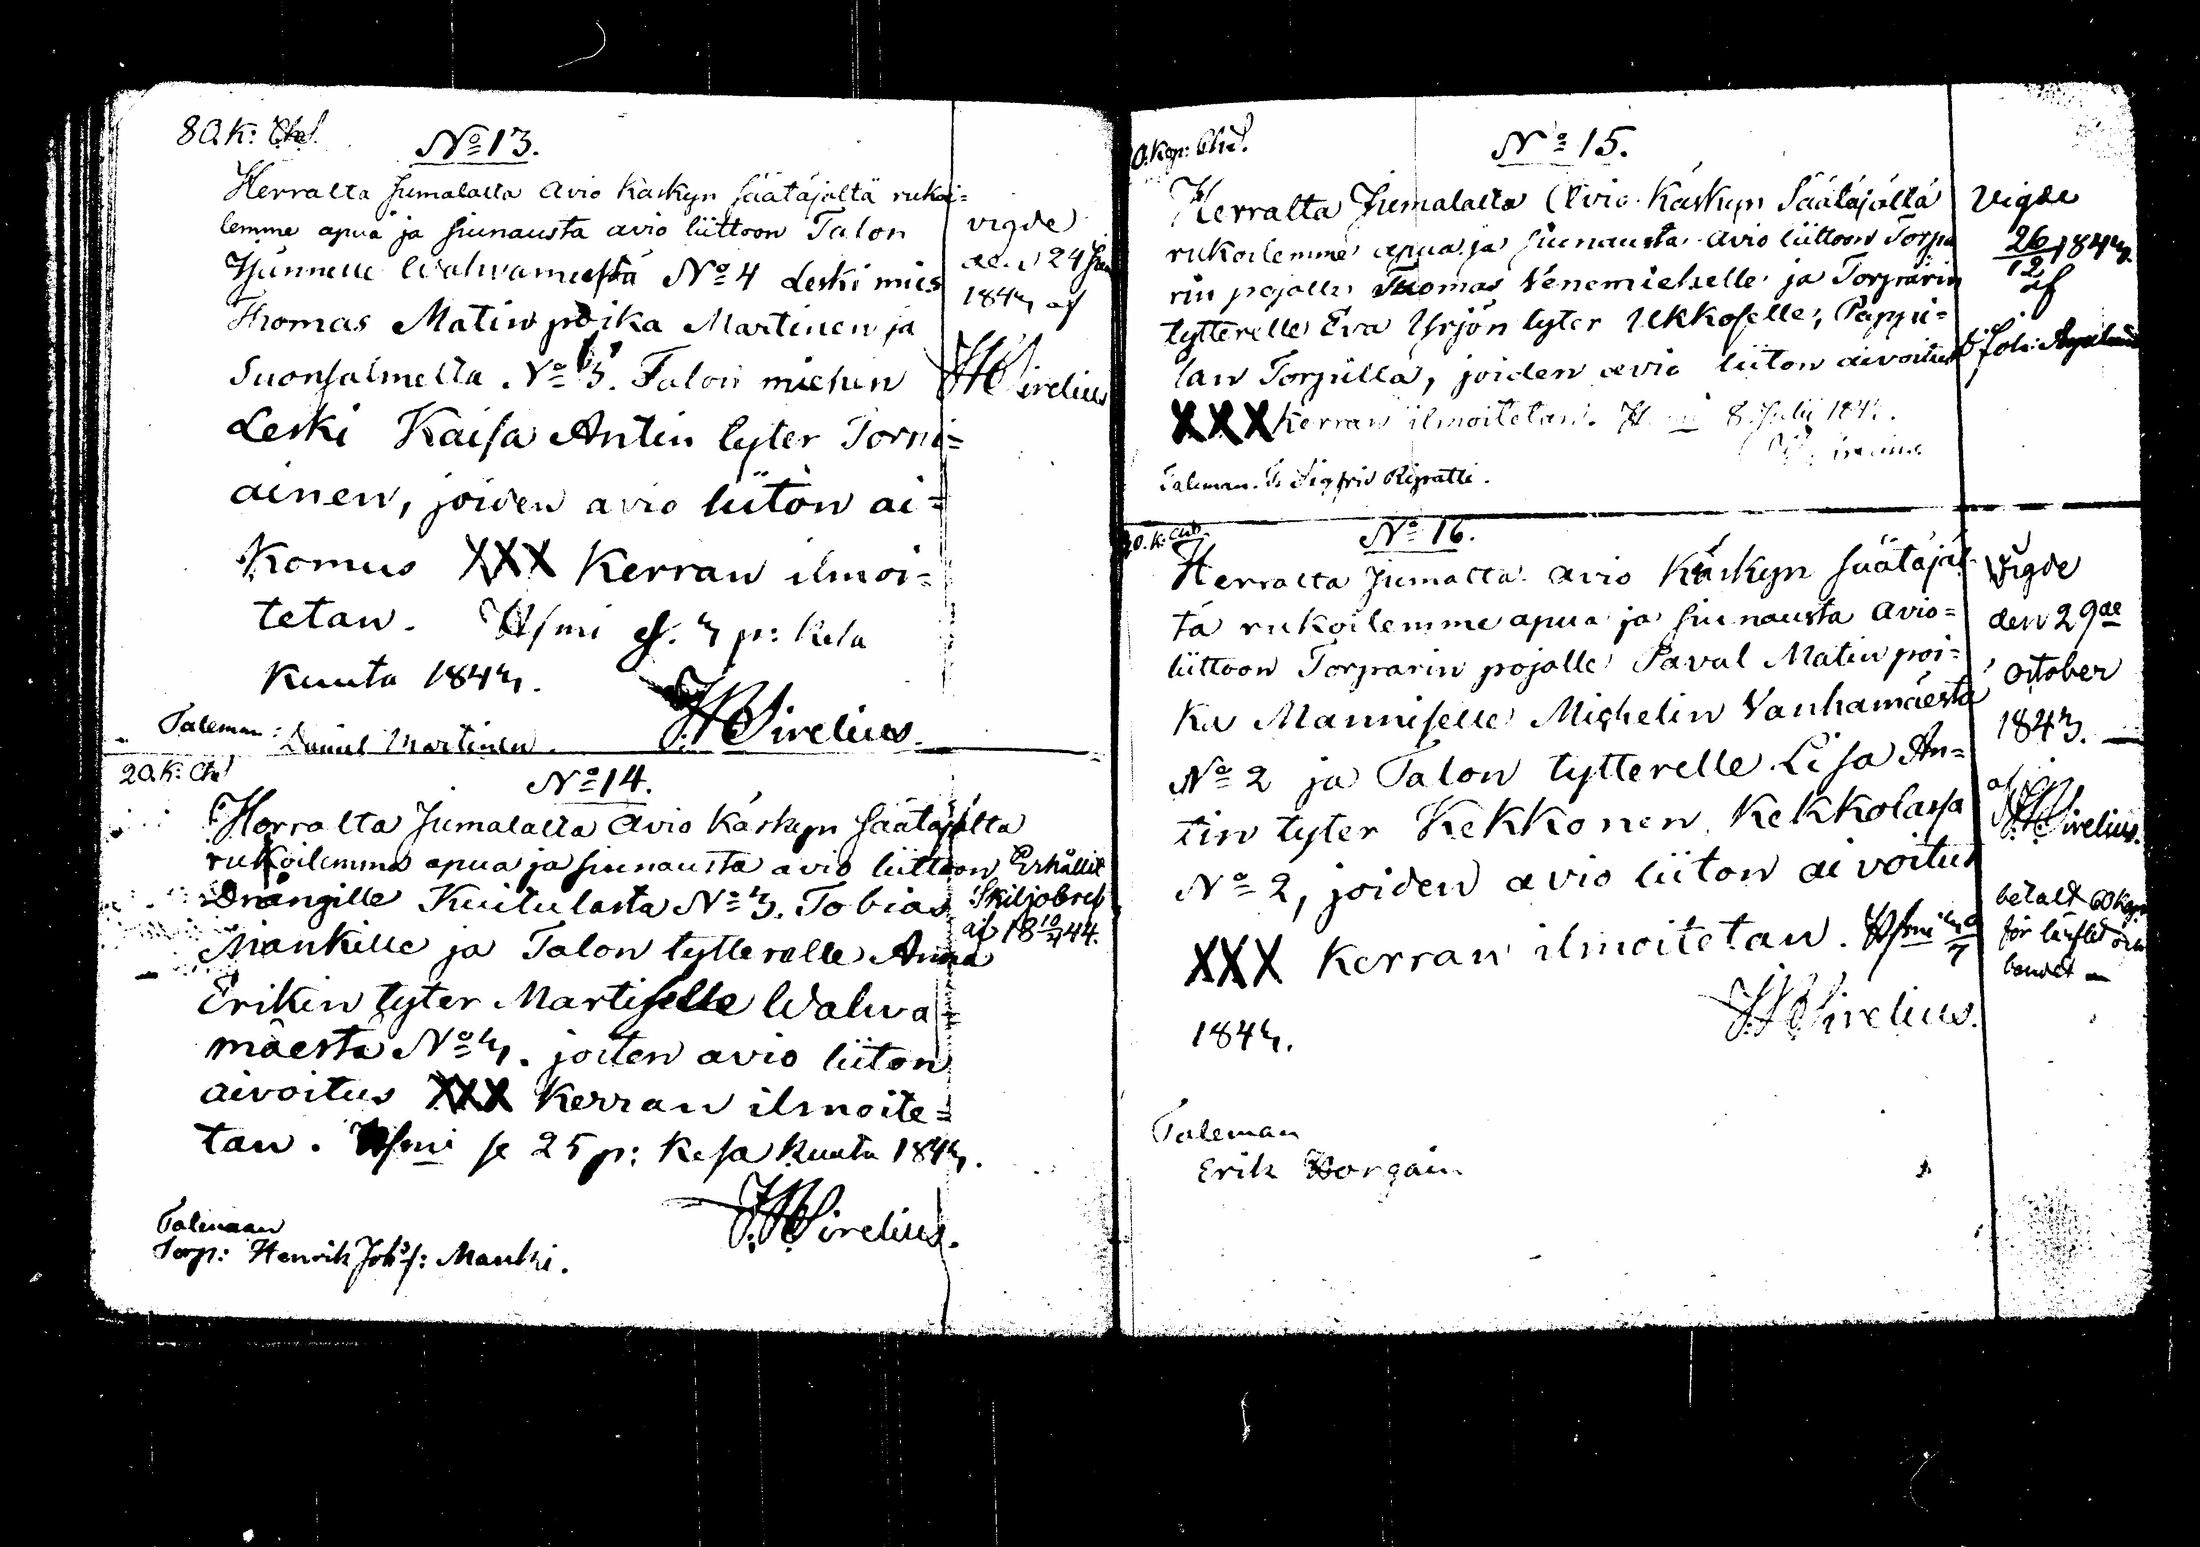 80.K: Chd.
No 13.
Herralta Jumalalta avio Käskyn säätäjältä rukoi=
lemme apua ja siunausta avio liittoon Talon
Isännelle Walwamäestä No 4 Leski mies
Thomas Matin poika Martinen ja
Suonsalmelta No 3. Talon miehen
Leski Kaisa Antin tyter Torni=
ainen, joiden avio liiton ai=
komus XXX Kerran ilmoi=
tetan. Hsmi p: Kesä
Kuuta 1843.
Taleman: Daniel Martinen.
HSirelius.
vigde
den 24 Jun
1843 af
HSirelius
20.K: Chd
No 14.
Herralta Jumalalta avio Käskyn säätäjältä
rukoilemme apua ja siunausta avio liittoon
Drängille Kuitulasta No 3. Tobias
Mankille ja Talon tytterelle Anna
Erikin tyter Martiselle Walwa=
mäestä No 4. joiten avio liiton
aivoitus XXX Kerran ilmoite=
tan. Hsmi se 25 p: Kesä Kuuta 1843.
HSirelius.
Talmaan
Torp: Henrik Johs: Manki.
Erhållit
Skiljobref
af 18 10/4 44.
0.Kop: Chd.
No 15.
Herralta Jumalalta Avio Käskyn Säätäjältä
rukoilemme apua ja siunausta avio liittoon Torpa
rin pojalle Tuomas Venemielselle ja Torpparin
tytterelle Eva Yrjön tyter Ukkoselle, Pappi=
lan Torpilla, joiden avio liiton aivoitus
XXX Kerran ilmoitetan. 8 Julii 1843.
Taleman. Sigfrid Ripatti.
Vigde
26/12 1843
af
Joh:
0.K: Chd.
No 16.
Herralta Jumalta avio Käskyn säätäjäl
tä rukoilemme apua ja siunausta avio=
liittoon Torparin pojalle Paval Matin poi=
ka Manniselle Michelin Vanhamäestä
No 2 ja Talon tytterelle Lisa An=
tin tyter Kekkonen Kekkolassa
No 2, joiden avio liiton aivoitus
XXX Kerran ilmoitetan. Hsmi
1843.
HSirelius.
Taleman
Erik Borgain
Vigde
den 29de
october
1843.
af
HSirelius.
betalt 60 Kop
för
bandet